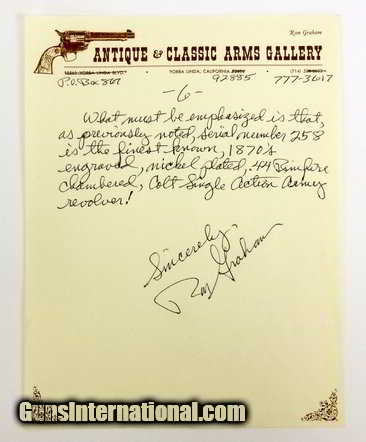 Ron Graham
ANTIQUE & CLASSIC ARMS GALLERY
YORBA LINDA, CALIFORNIA 92885
P.O. Box 867 (714) 777-3617
-6-
What must be emphasized is that,
as previously noted, serial number 258
is the finest known, 1870's
engraved, nickel plated, .44 Rimfire
chambered, Colt Single Action Army
revolver!
Sincerely,
Ron Graham
GunsInternational.com